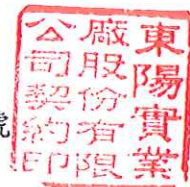 東陽實業
廠股份有限
公司契約印